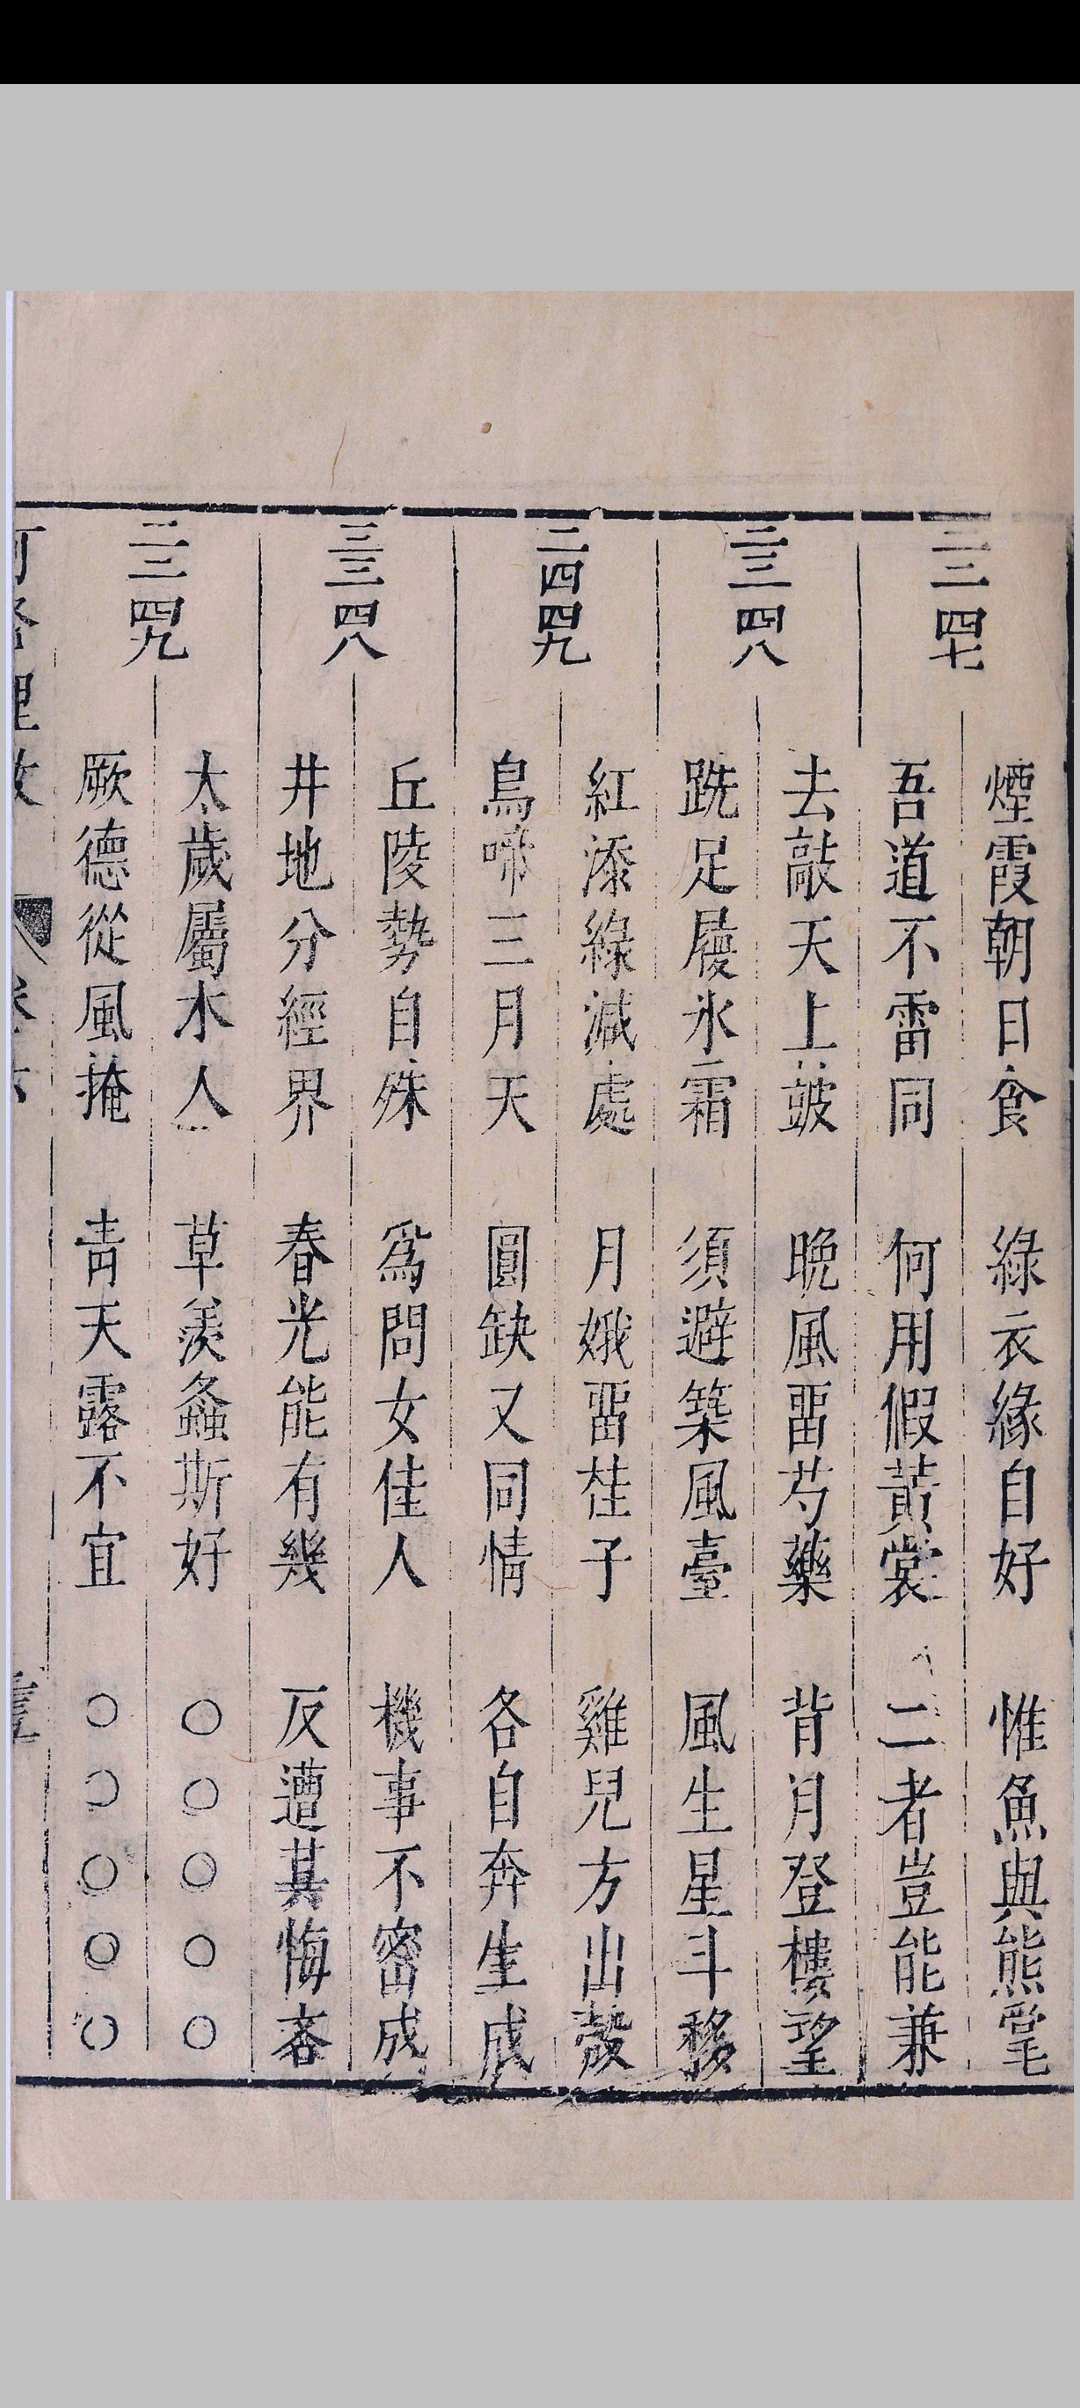 二三四七
煙霞朝日食　綠衣緣自好　惟魚與熊掌
吾道不畱同　何用假黃裳　二者豈能兼
二三四八
去敲天上皷　晩風畱芍藥　背月登樓望
跣足履氷霜　須避築風臺　風生星斗移
二四四九
紅添綠減處　月娥畱桂子　雞兒方出殼
鳥啼三月天　圓缺又同情　各自奔生成
三三四八
丘陵勢自殊　爲問女佳人　機事不密成
井地分經界　春光能有幾　反遭其悔吝
二三四九
太歲屬木人　草羨螽斯好　○○○○○
厥德從風掩　靑天露不宜　○○○○○